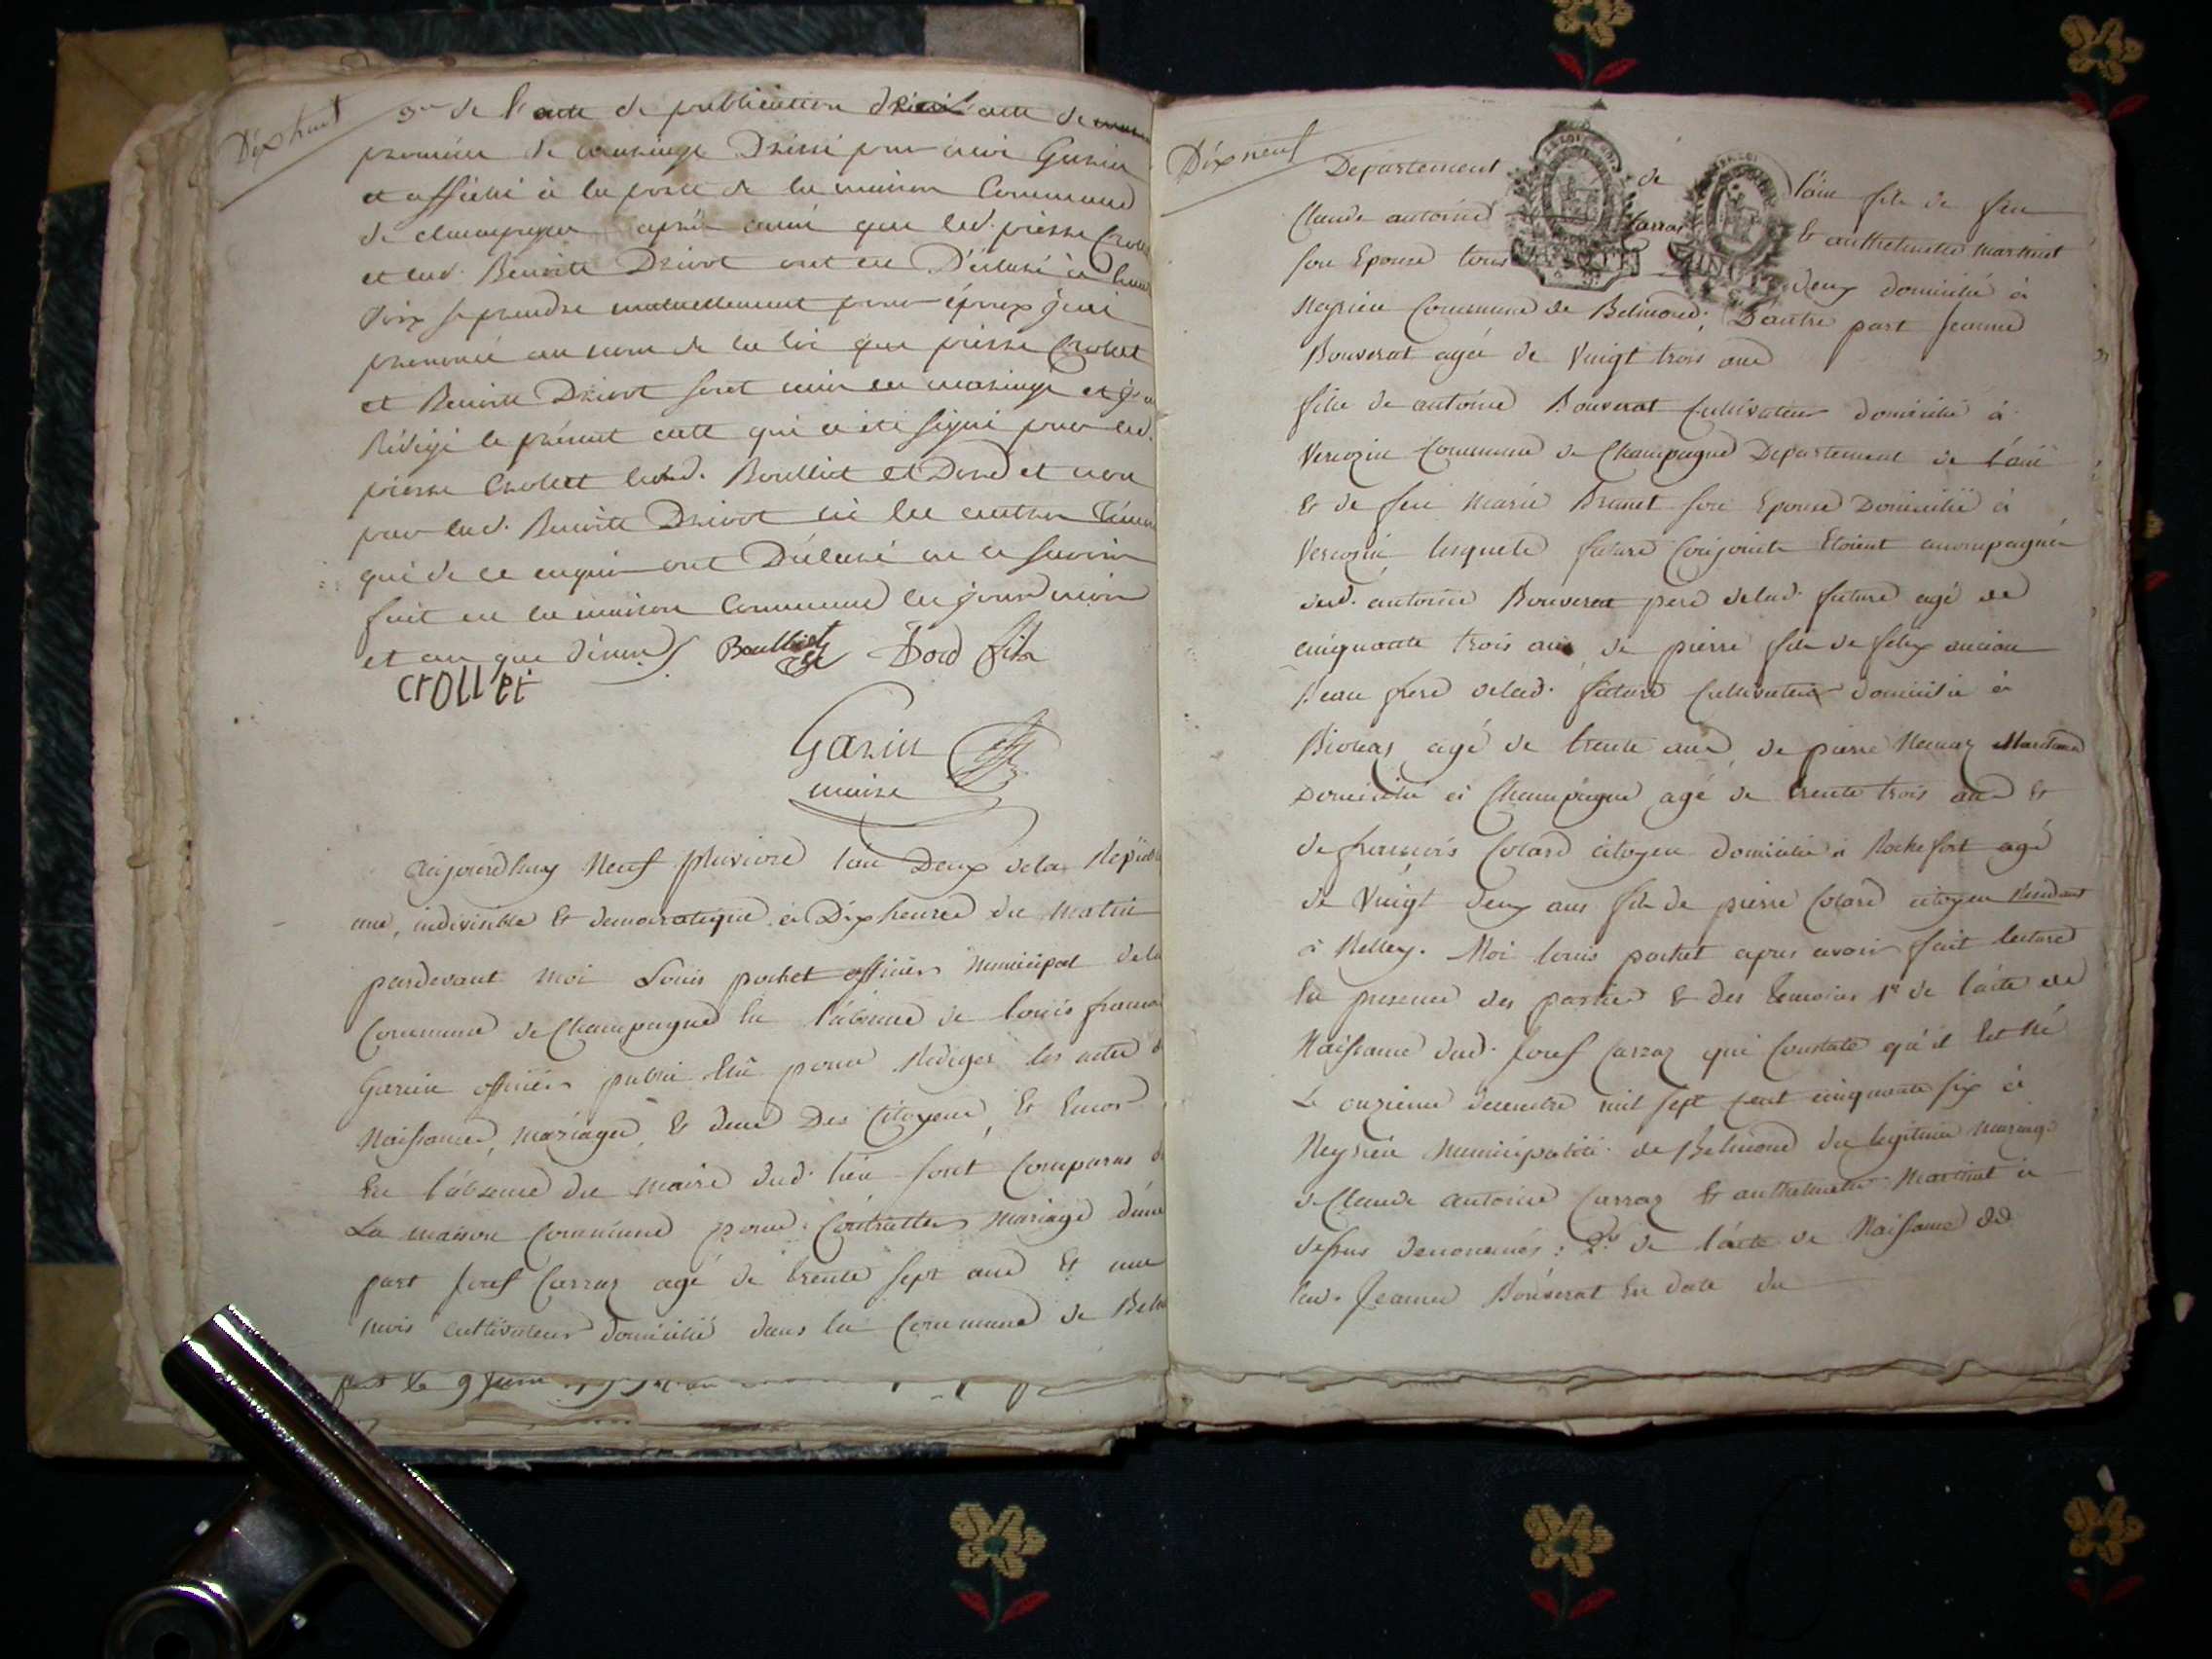 Dix huit
3e de l'acte de publication acte de
promesse de mariage Dressé par moi Garin
et affiché à la porte de la maison Commune
de champagne après aussi que led. pierre Crollet
et lad. Benoite Drivot ont eu Déclaré à haute
voix se prendre mutuellement pour époux j'ai
prononcé au nom de la loi que pierre Crollet
et Benoite Drivot sont unis en mariage et j'ai
Rédigé le présent acte qui a été signé par led.
pierre Crollet lesd. Boulliet et Dord et non
par lad. Benoite Drivot ni les autres Témoins
qui de ce enquis ont Déclaré ne le savoir
fait en la maison Commune les jour mois
et an que dessus Boulliet Dord fils
crollet
Garin
maire
Aujourdhuy Neuf pluviose l'an Deux dela Republ
une, indivisible Et democratique à Dix heures du Matin
pardevant Moi Louis pochet officier Municipal dela
Commune de Champagne En l'absence de louis francois
Garin officier public Elu pour Rediger les actes d
Naissance, mariages, Et deces Des Citoyens, Et Encor
En l'absence du Maire dud. lieu sont Comparus d
La maison Commune pour Contracter Mariage d'une
part Josef Carraz agé de trente sept ans Et un
mois cultivateur domicilié dans la Commune de Belm
le 9 Juin
Dix neuf
Departement de l'ain fils de feu
Claude antoine Carraz Et anthelmette Martinet
son Epouse tous deux domicilié à
Neyrieu Commune de Belmond; D'autre part Jeanne
Bouverat agée de Vingt trois ans
fille de antoine Bouverat Cultivateur domicilié à
Vercozin Commune de Champagne Departement de l'ain
Et de feue Marie Brunet son Epouse Domicilié à
Vercosin, lesquels futurs Conjoints Etoient accompagnés
dud. antoine Bouverat pere delad. future agé de
cinquante trois ans, de pierre fils de felix ancian
Beau frere delad. future Cultivateur domicilié à
Bioleaz agé de trente ans, de pierre Marchand
Domicilié à Champagne agé de trente trois ans Et
de francois Colard citoyen domicilié à Rochefort agé
de Vingt deux ans fils de pierre Colard citoyen Residant
à Belley. Moi louis pochet apres avoir fait lecture
En presence des parties Et des temoins 1er de l'acte de
Naissance dud. Josef Carraz qui Constate qu'il Est Né
Le onzieme decembre mil sept cent cinquante six à
Neyrieu Municipalité de Belmond du legitime Mariage
de Claude antoine Carraz Et anthelmette Martinet ci
dessus denommés: 2e de l'acte de Naissance de
lad. Jeanne Bouverat En date du